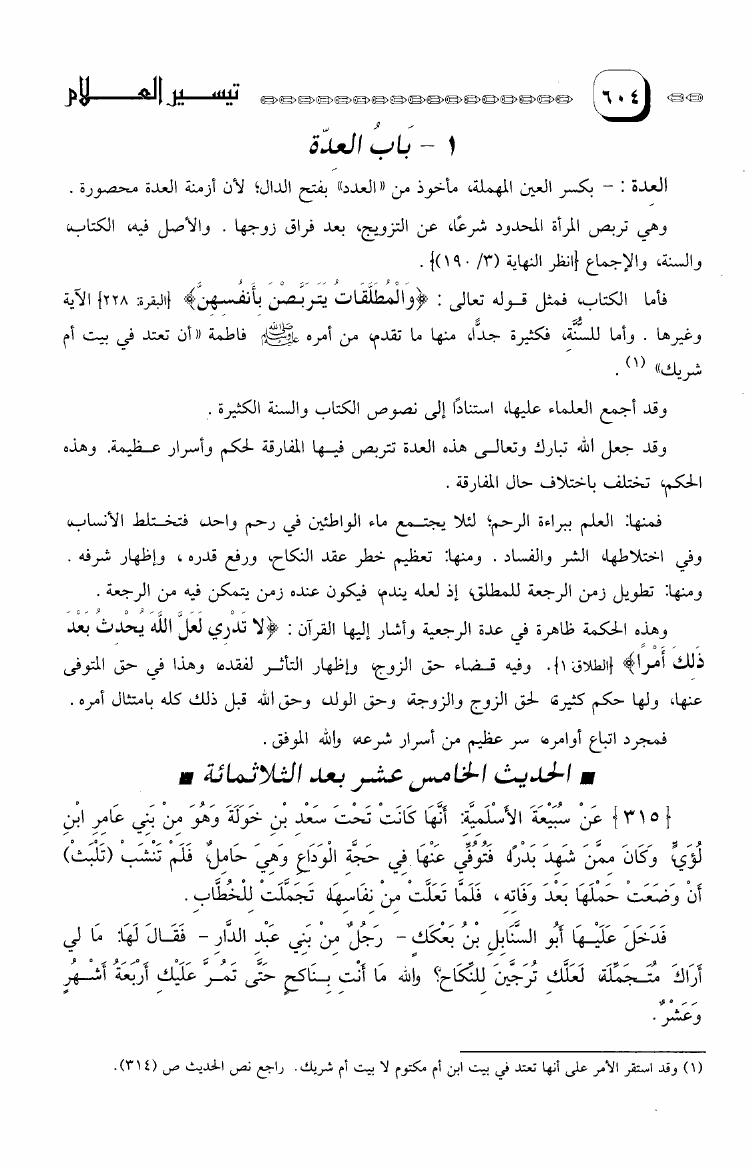 ٦٠٤ تيسير العلام
١ - بَابُ العدّة
العدة : - بكسر العين المهملة، مأخوذ من «العدد» بفتح الدال؛ لأن أزمنة العدة محصورة .
وهي تربص المرأة المحدود شرعًا، عن التزويج، بعد فراق زوجها . والأصل فيه، الكتاب،
والسنة، والإجماع {انظر النهاية (٣/ ١٩٠)} .
فأما الكتاب، فمثل قوله تعالى : ﴿وَالْمُطَلَّقَاتُ يَتَرَبَّصْنَ بِأَنفُسِهِنَّ﴾ {البقرة: ٢٢٨} الآية
وغيرها . وأما للسُّنَّة، فكثيرة جدًّا، منها ما تقدم، من أمره ﷺ فاطمة «أن تعتد في بيت أم
شريك» (١) .
وقد أجمع العلماء عليها، استنادًا إلى نصوص الكتاب والسنة الكثيرة .
وقد جعل الله تبارك وتعالى هذه العدة تتربص فيها المفارقة لحكم وأسرار عظيمة. وهذه
الحكم، تختلف باختلاف حال المفارقة .
فمنها: العلم ببراءة الرحم؛ لئلا يجتمع ماء الواطئين في رحم واحد، فتختلط الأنساب،
وفي اختلاطها، الشر والفساد . ومنها: تعظيم خطر عقد النكاح، ورفع قدره ، وإظهار شرفه .
ومنها: تطويل زمن الرجعة للمطلق، إذ لعله يندم، فيكون عنده زمن يتمكن فيه من الرجعة .
وهذه الحكمة ظاهرة في عدة الرجعية وأشار إليها القرآن : ﴿لا تَدْرِي لَعَلَّ اللَّهَ يُحْدِثُ بَعْدَ
ذَلِكَ أَمْرًا﴾ {الطلاق: ١}. وفيه قضاء حق الزوج، وإظهار التأثر لفقده، وهذا في حق المتوفى
عنها، ولها حكم كثيرة، لحق الزوج والزوجة، وحق الولد، وحق الله قبل ذلك كله بامتثال أمره .
فمجرد اتباع أوامره، سر عظيم من أسرار شرعه، والله الموفق.
■ الحديث الخامس عشر بعد الثلاثمائة ■
{٣١٥} عَنْ سُبَيْعَةَ الأَسْلَمِيَّةِ: أَنَّهَا كَانَتْ تَحْتَ سَعْدِ بْنِ خَوْلَةَ وَهُوَ مِنْ بَنِي عَامِرِ ابْنِ
لُؤَيٍّ وَكَانَ مِمَّنْ شَهِدَ بَدْرًا، فَتُوُفِّيَ عَنْهَا فِي حَجَّةِ الْوَدَاعِ وَهِيَ حَامِلٌ، فَلَمْ تَنْشَبْ (تَلْبَثْ)
أَنْ وَضَعَتْ حَمْلَهَا بَعْدَ وَفَاتِهِ ، فَلَمَّا تَعَلَّتْ مِنْ نِفَاسِهَا، تَجَمَّلَتْ لِلْخُطَّابِ .
فَدَخَلَ عَلَيْهَا أَبُو السَّنَابِلِ بْنُ بَعْكَكٍ - رَجُلٌ مِنْ بَنِي عَبْدِ الدَّارِ - فَقَالَ لَهَا: مَا لي
أَرَاكِ مُتَجَمِّلَةً، لَعَلَّكِ تُرَجِّينَ لِلنِّكَاحِ؟ والله مَا أَنْتِ بِنَاكِحٍ حَتَّى تَمُرَّ عَلَيْكِ أَرْبَعَةُ أَشْهُرٍ
وَعَشْرٌ .
(١) وقد استقر الأمر على أنها تعتد في بيت ابن أم مكتوم لا بيت أم شريك. راجع نص الحديث ص (٣١٤).